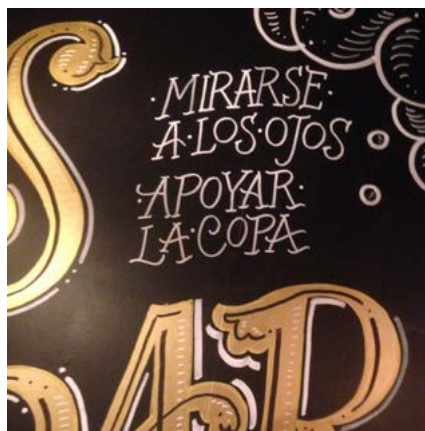 ·MIRARSE·
A·LOS·OJOS
·APOYAR·
LA·COPA